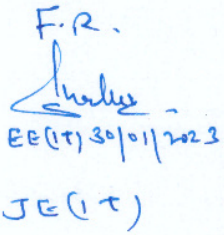 F.R.
EE(IT) 30/01/2023
JE(IT)